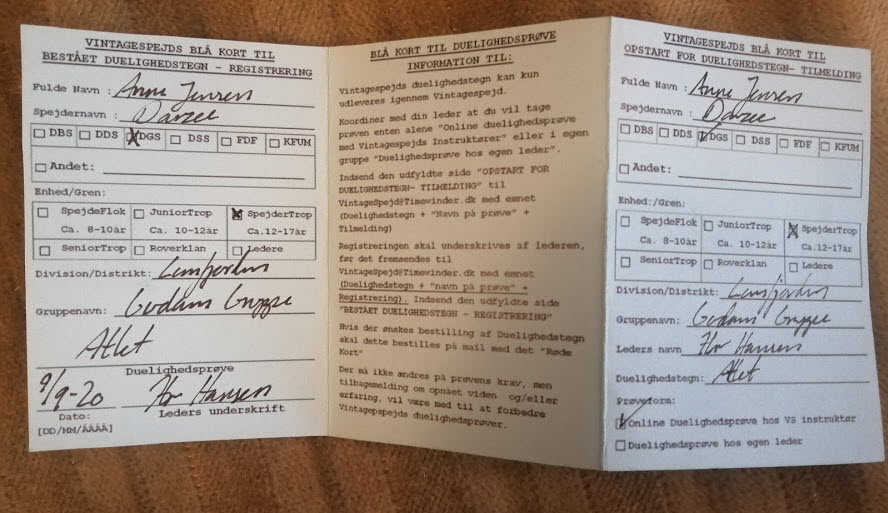 VINTAGESPEJDS BLÅ KORT TIL
BESTÅET DUELIGHEDSTEGN - REGISTRERING
Fulde Navn : Anne Jensen
Spejdernavn :
DBS DDS DGS DSS FDF KFUM
Andet:
Enhed/Gren:
SpejdeFlok JuniorTrop SpejderTrop
Ca. 8-10år Ca. 10-12år Ca.12-17år
SeniorTrop Roverklan Ledere
Division/Distrikt:
Gruppenavn: Gruppe
Atlet
Duelighedsprøve
9/9-20 Hr Hansen
Dato: Leders underskrift
[DD/MM/ÅÅÅÅ]
BLÅ KORT TIL DUELIGHEDSPRØVE
INFORMATION TIL:
Vintagespejds duelighedstegn kan kun
udleveres igennem Vintagespejd.
Koordiner med din leder at du vil tage
prøven enten alene "Online duelighedsprøve
med Vintagespejds Instruktører" eller i egen
gruppe "Duelighedsprøve hos egen leder".
Indsend den udfyldte side "OPSTART FOR
DUELIGHEDSTEGN- TILMELDING" til
VintageSpejd@Timewinder.dk med emnet
(Duelighedstegn + "Navn på prøve" +
Tilmelding)
Registreringen skal underskrives af lederen,
før det fremsendes til
VintageSpejd@Timewinder.dk med emnet
(Duelighedstegn + "navn på prøve" +
Registrering). Indsend den udfyldte side
"BESTÅET DUELIGHEDSTEGN - REGISTRERING"
Hvis der ønskes bestilling af Duelighedstegn
skal dette bestilles på mail med det "Røde
Kort"
Der må ikke ændres på prøvens krav, men
tilbagemelding om opnået viden og/eller
erfaring, vil være med til at forbedre
Vintagepsejds duelighedsprøver.
VINTAGESPEJDS BLÅ KORT TIL
OPSTART FOR DUELIGHEDSTEGN- TILMELDING
Fulde Navn : Anne Jensen
Spejdernavn :
DBS DDS DGS DSS FDF KFUM
Andet:
Enhed:/Gren:
SpejdeFlok JuniorTrop SpejderTrop
Ca. 8-10år Ca. 10-12år Ca.12-17år
SeniorTrop Roverklan Ledere
Division/Distrikt:
Gruppenavn: Gruppe
Leders navn Hr Hansen
Duelighedstegn: Atlet
Prøveform:
Online Duelighedsprøve hos VS instruktør
Duelighedsprøve hos egen leder